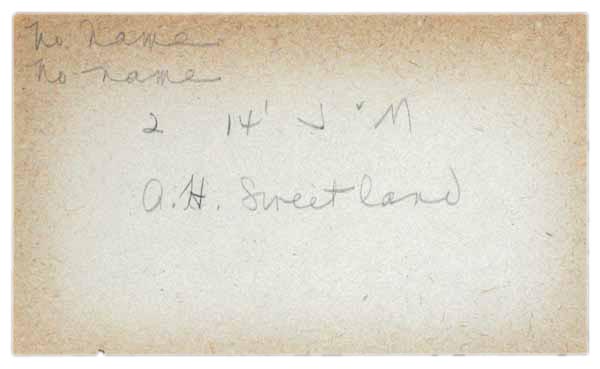 No. Name
No name
2 14' J "M
A.H. Sweetland